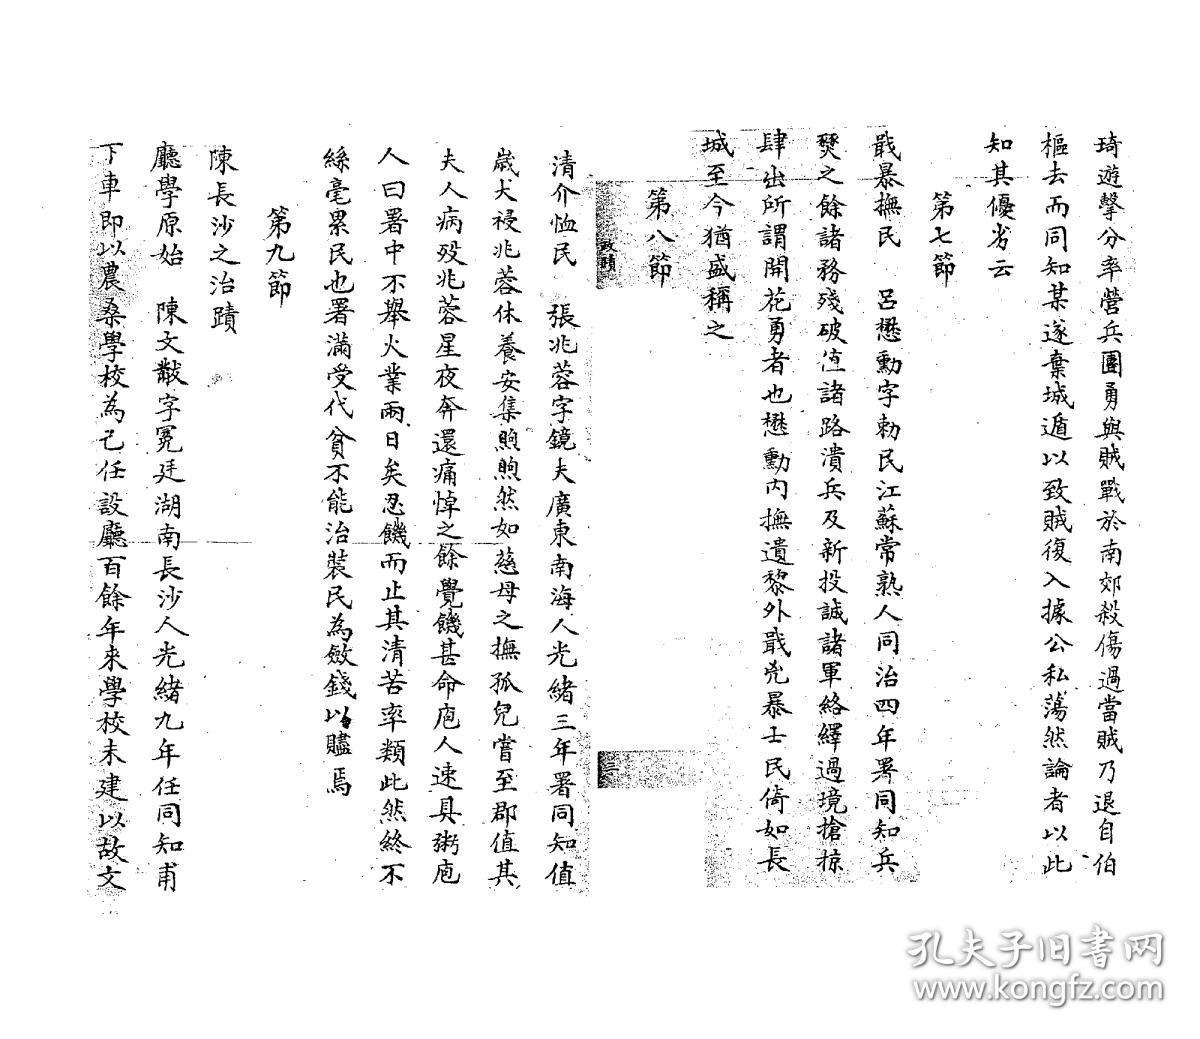 琦遊擊分率營兵團勇與賊戰於南郊殺傷過當賊乃退自伯
樞去而同知某遂棄城遁以致賊復入據公私蕩然論者以此
知其優劣云
第七節
戢暴撫民 呂懋勳字勅民江蘇常熟人同治四年署同知兵
燹之餘諸務殘破值諸路潰兵及新投誠諸軍絡繹過境搶掠
肆出所謂開花勇者也懋勳內撫遺黎外戢兇暴士民倚如長
城至今猶盛稱之
第八節
政績
三
清介恤民 張兆蓉字鏡夫廣東南海人光緒三年署同知值
歲大祲兆蓉休養安集煦煦然如慈母之撫孤兒嘗至郡值其
夫人病歿兆蓉星夜奔還痛悼之餘覺饑甚命庖人速具粥庖
人曰署中不舉火業兩日矣忍饑而止其清苦率類此然終不
絲毫累民也署滿受代貧不能治裝民為斂錢以贐焉
第九節
陳長沙之治蹟
廳學原始 陳文黻字冕廷湖南長沙人光緒九年任同知甫
下車即以農桑學校為己任設廳百餘年來學校未建以故文
孔夫子旧书网
www.kongfz.com